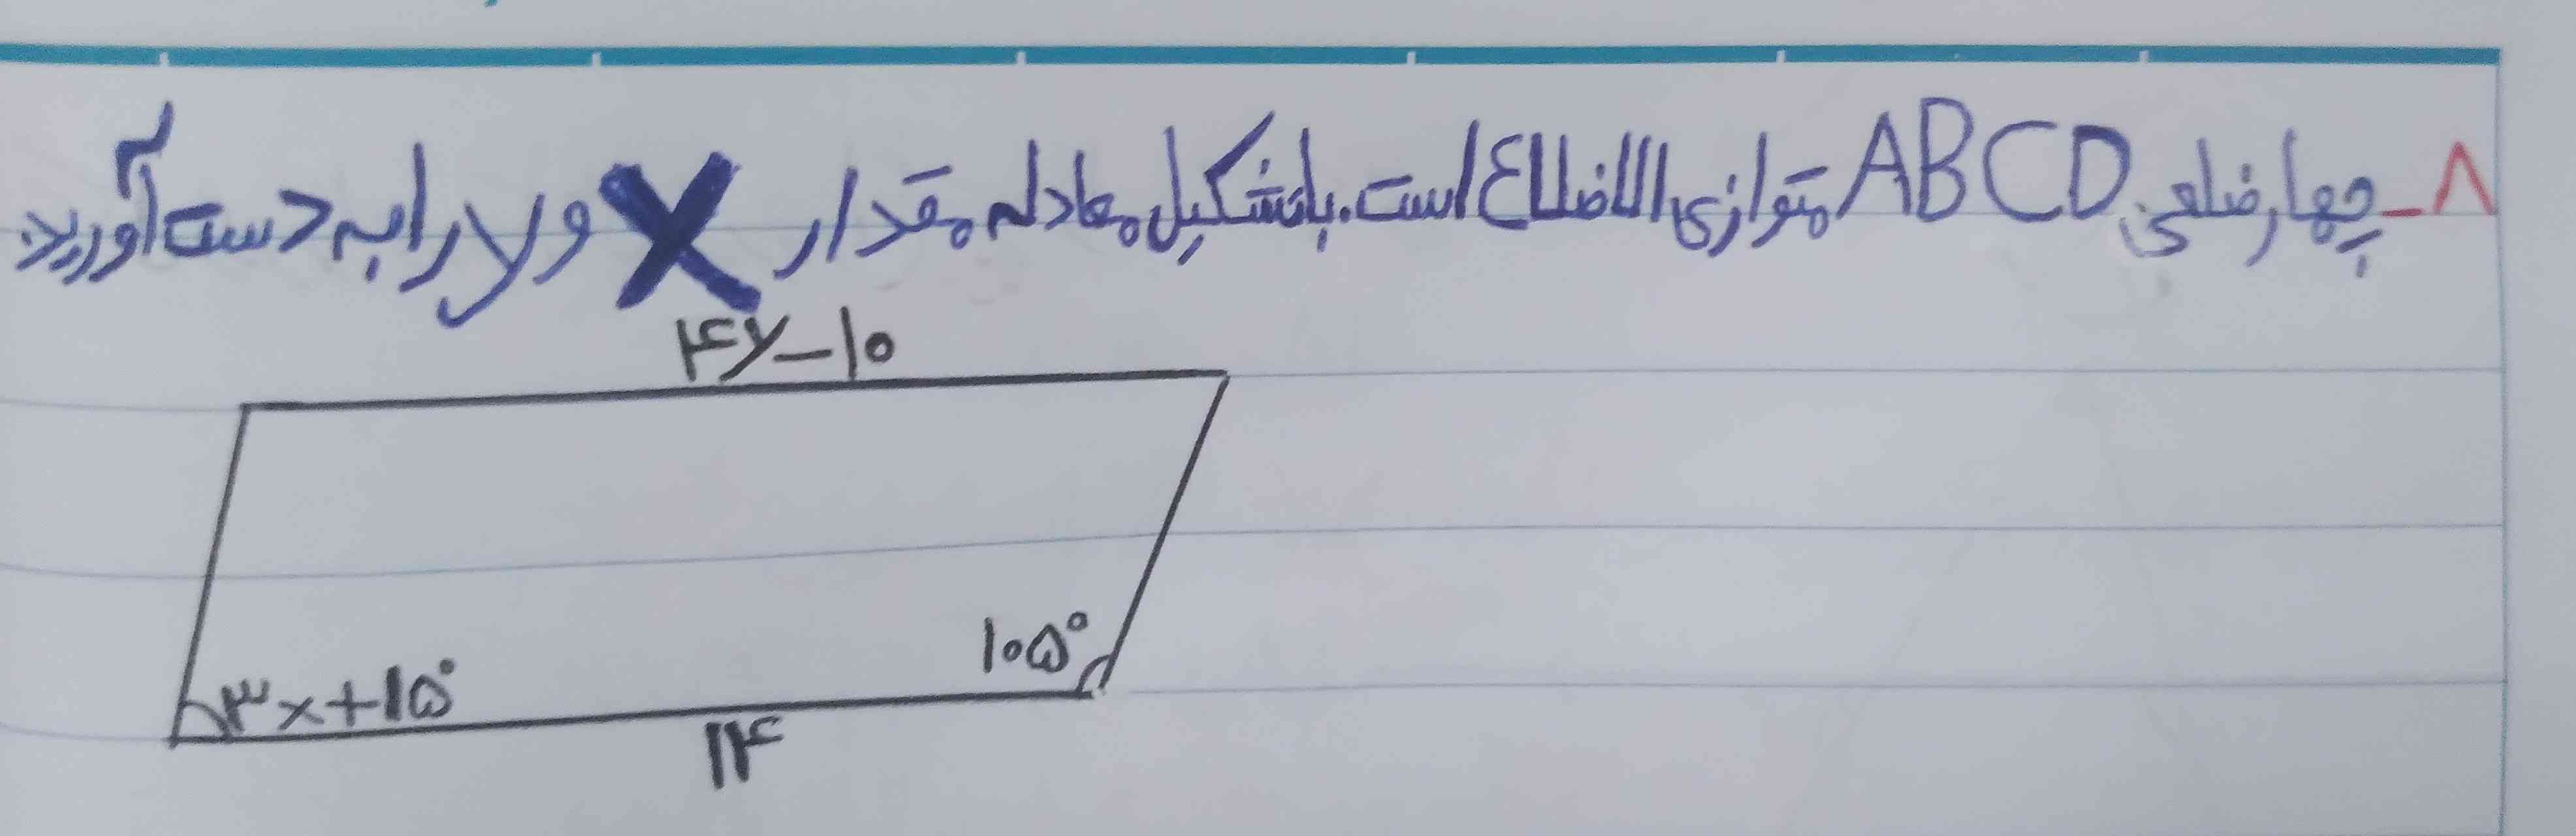 ۸_ چهارضلعی ABCD متوازی الاضلاع است. با تشکیل معادله مقدار X و y را به دست آورید
۴y-۱۰
۱۰۵°
۳x+۱۵°
۱۴